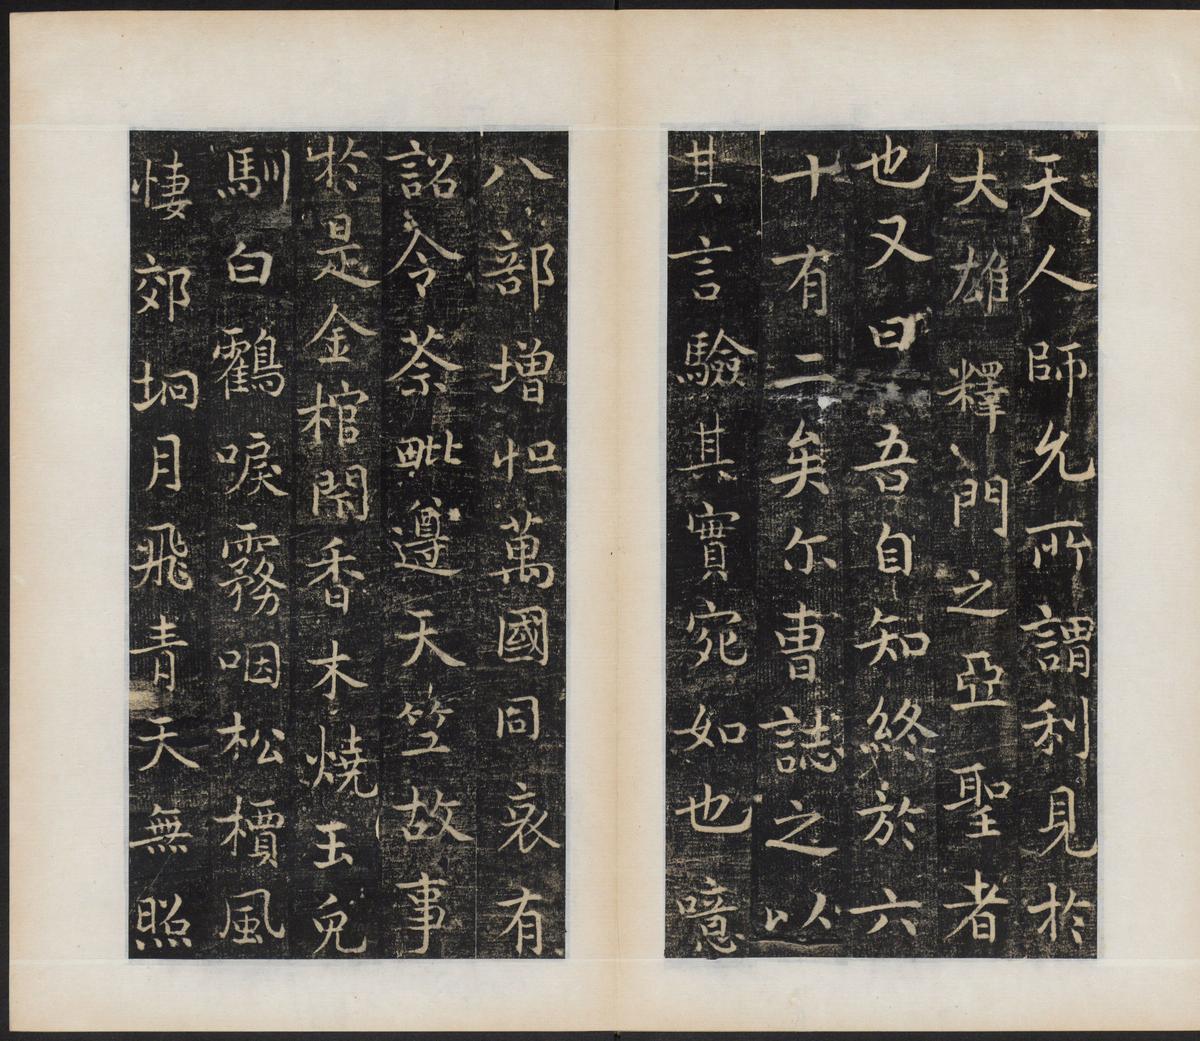 天人師允所謂利見於
大雄釋門之亞聖者
也又曰吾自知終於六
十有二矣尔曹誌之以
其言驗其實宛如也噫
八部增怛萬國同哀有
詔令荼毗遵天竺故事
於是金棺閟香木燒玉兔
馴白鸖唳霧咽松檟風
悽郊坰月飛青天無照